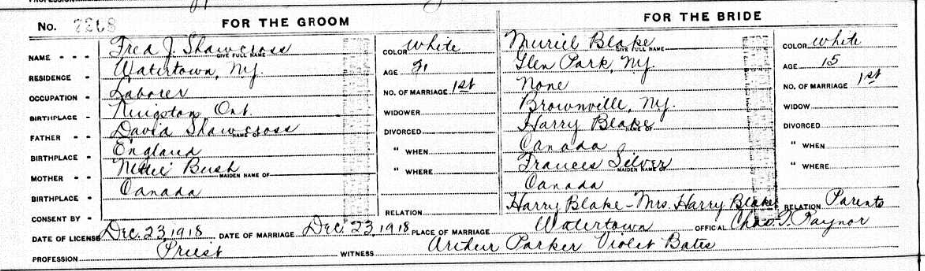 FOR THE GROOM FOR THE BRIDE
No. 7268
NAME Fred J. Shawcross GIVE FULL NAME COLOR White Muriel Blake GIVE FULL NAME COLOR White
RESIDENCE Watertown, NY. AGE 21 Glen Park, NY. AGE 15
OCCUPATION Laborer NO. OF MARRIAGE 1st None NO. OF MARRIAGE 1st
BIRTHPLACE Kingston Ont. WIDOWER Brownville, NY. WIDOW
FATHER David Shawcross DIVORCED Harry Blake DIVORCED
BIRTHPLACE England " WHEN Canada " WHEN
MOTHER Nettie Bush MAIDEN NAME OF " WHERE Frances Silver MAIDEN NAME OF " WHERE
BIRTHPLACE Canada Canada
CONSENT BY RELATION Harry Blake - Mrs. Harry Blake RELATION Parents
DATE OF LICENSE Dec. 23, 1918 DATE OF MARRIAGE Dec. 23, 1918 PLACE OF MARRIAGE Watertown OFFICIAL Chas. T. Raynor
PROFESSION Priest WITNESS Arthur Parker Violet Bates